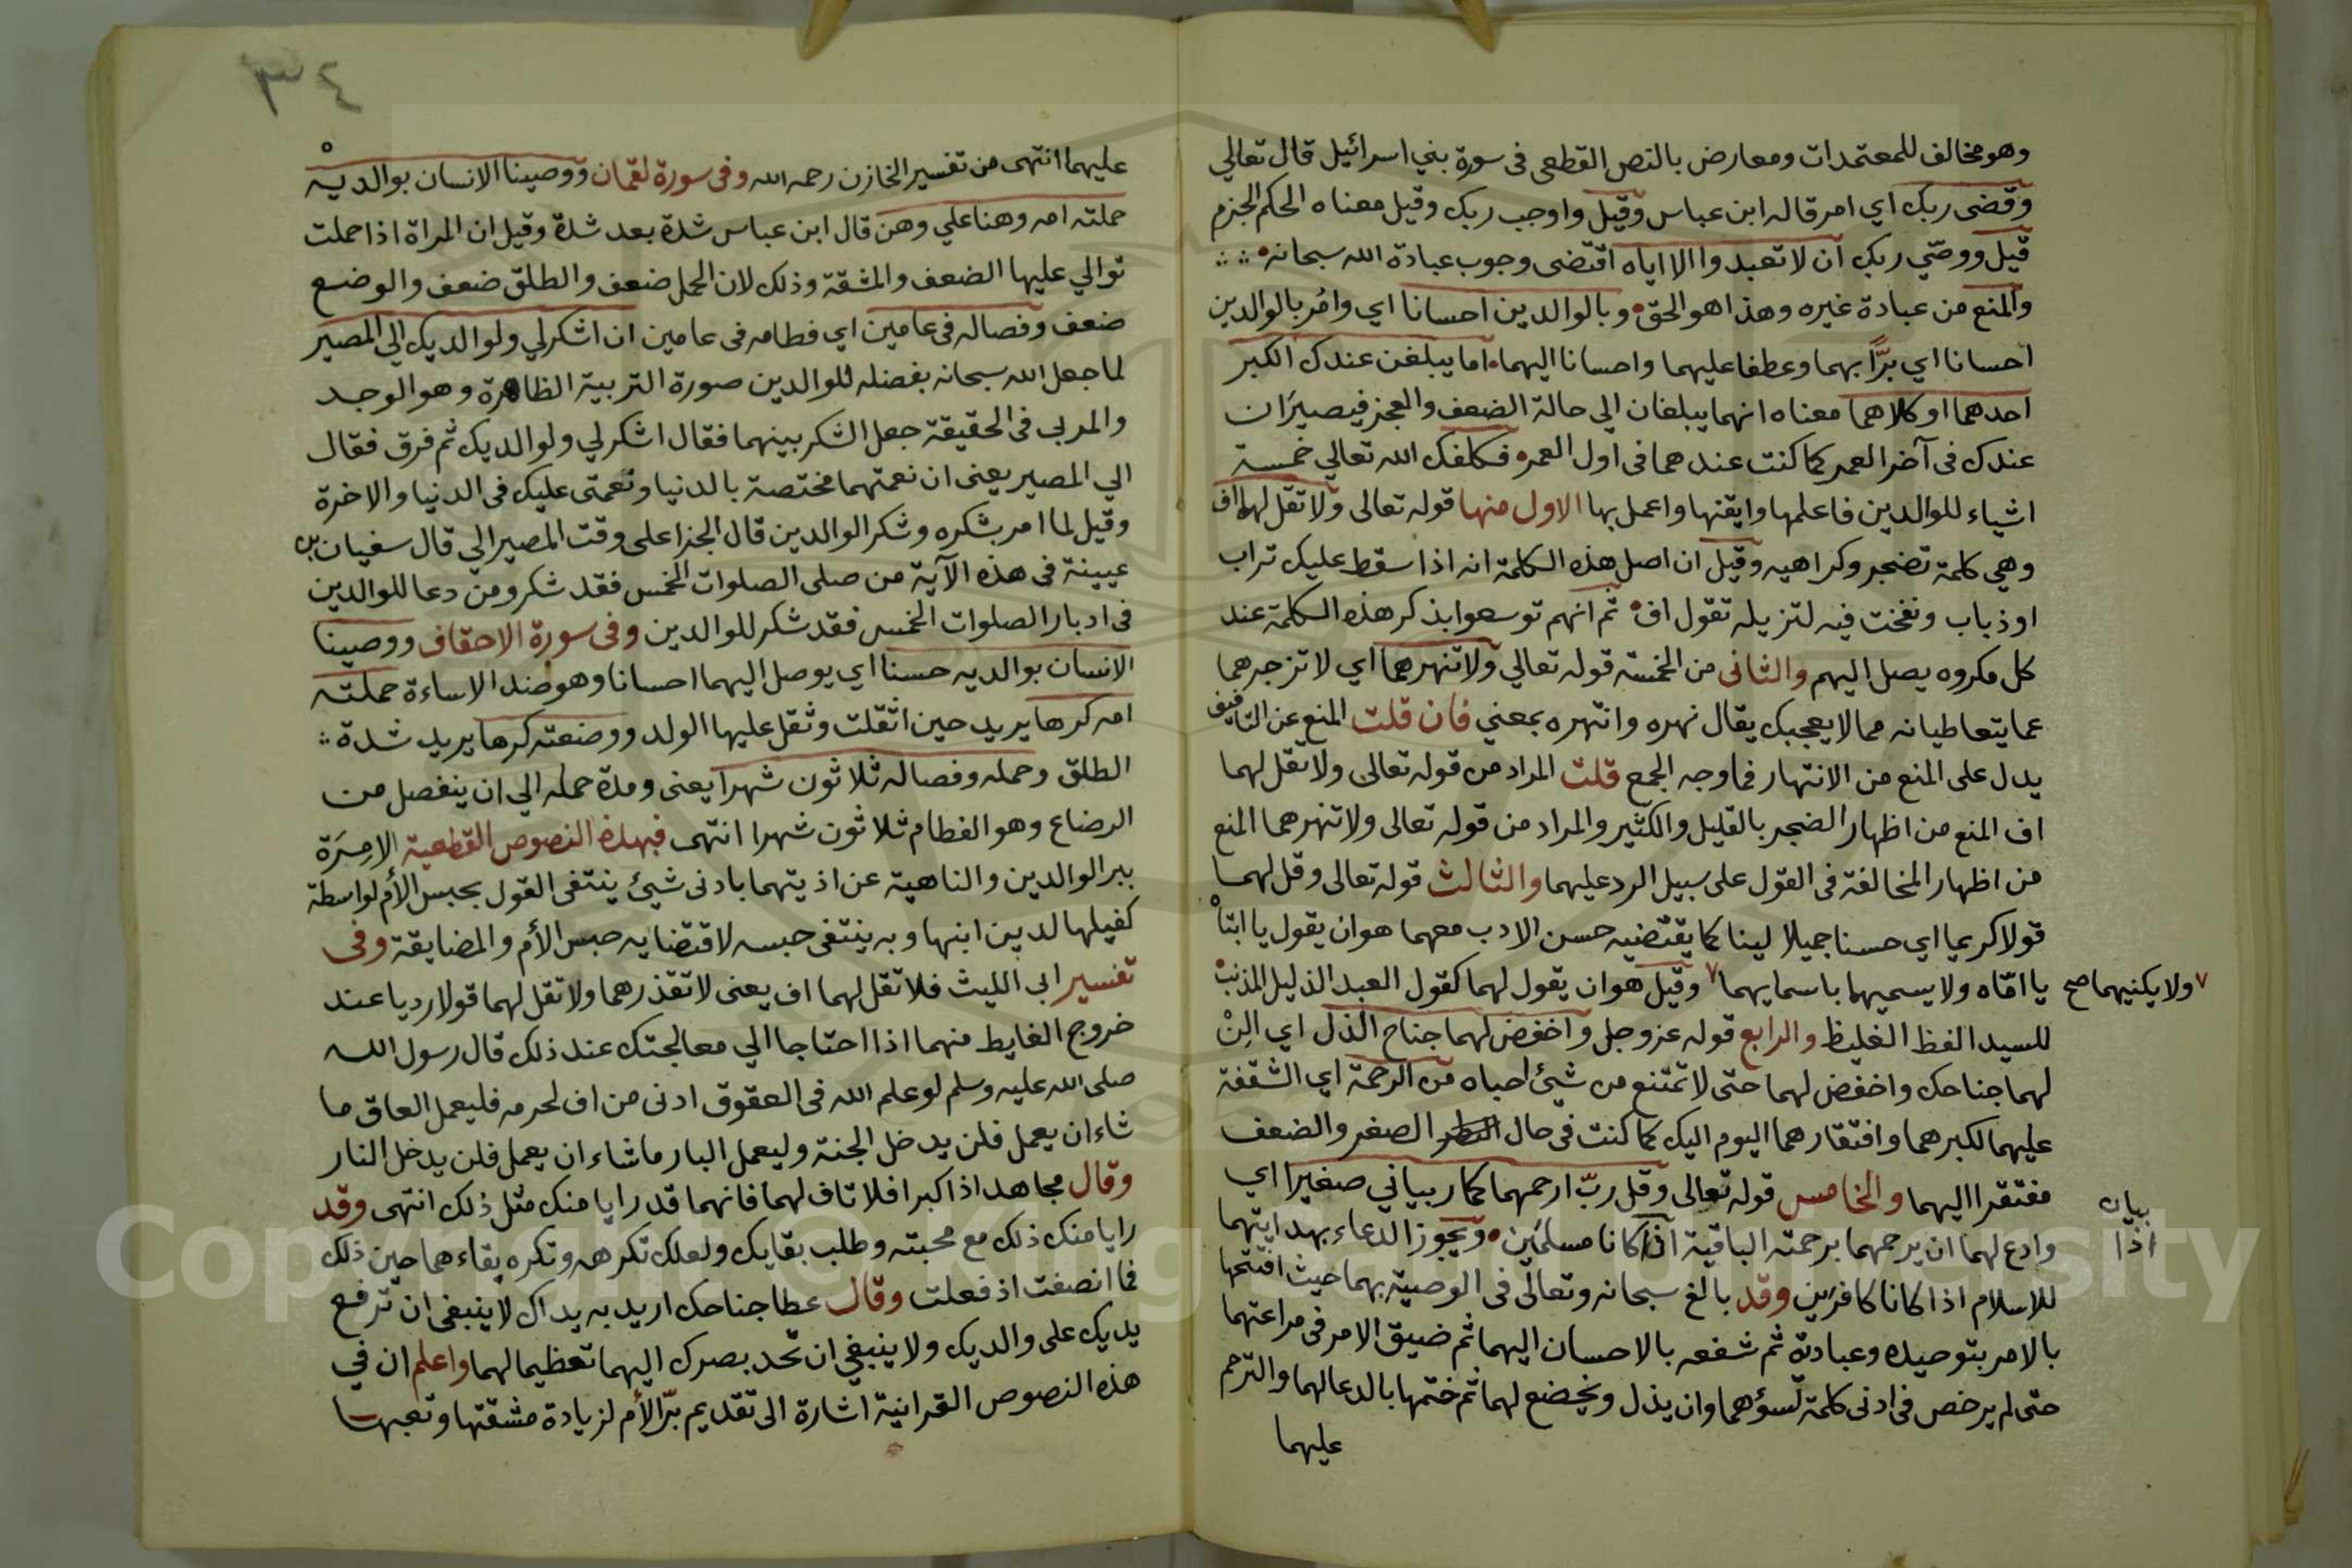 وهو مخالف للمعتمدات ومعارض بالنص القطعى فى سورة بني اسرائيل قال تعالي
وقضى ربك اي امر قاله ابن عباس وقيل واوجب ربك وقيل معناه الحكم الجزم
قيل ووصّي ربك ان لا تعبدوا الا اياه اقتضى وجوب عبادة الله سبحانه
والمنع من عبادة غيره وهذا هو الحق وبالوالدين احسانا اي وامُر بالوالدين
احسانا اي برًّا بهما وعطفا عليهما واحسانا اليهما اما يبلغن عندك الكبر
احدهما او كلاهما معناه انهما يبلغان الي حالة الضعف والعجز فيصيرَان
عندك فى آخر العمر كما كنت عندهما فى اول العمر فكلفك الله تعالي خمسة
اشياء للوالدين فاعلمها وايقنها واعمل بها الاول منها قوله تعالى ولا تقل لهما اف
وهي كلمة تضجر وكراهيه وقيل ان اصل هذه الكلمة انه اذا سقط عليك تراب
او ذباب ونفخت فيه لتزيله تقول اف ثم انهم توسعوا بذكر هذه الكلمة عند
كل مكروه يصل اليهم والثانى من الخمسة قوله تعالي ولا تنهرهما اي لا تزجرهما
عما يتعاطيانه مما لا يعجبك يقال نهره وانتهره بمعني فان قلت المنع عن التافيف
يدل على المنع من الانتهار فما وجه الجمع قلت المراد من قوله تعالى ولا تقل لهما
اف المنع من اظهار الضجر بالقليل والكثير والمراد من قوله تعالى ولا تنهرهما المنع
من اظهار المخالفة فى القول على سبيل الرد عليهما والثالث قوله تعالى وقل لهما
قولا كريما اي حسنا جميلا لينا كما يقتضيه حسن الادب معهما هو ان يقول يا ابتاْ
يا امّاه ولا يسميهما باسمايهما ٧ وقيل هو ان يقول لهما كقول العبد الذليل المذنب
٧ ولا يكنيهما صح
للسيد الفظ الغليظ والرابع قوله عز وجل واخفض لهما جناح الذل اي الِنْ
لهما جناحك واخفض لهما حتى لا تمتنع من شيئ احباه من الرحمة اي الشفقة
عليهما لكبرهما وافتقارهما اليوم اليك كما كنت فى حال الصغر والضعف
مفتقرا اليهما والخامس قوله تعالى وقل ربّ ارحمهما كما ربياني صغيرا اي
وادع لهما ان يرحمهما برحمته الباقية اذا كانا مسلمَين ويجوز الدعاء بهدايتهما
بيان
اذا
للاسلام اذا كانا كافرَين وقد بالغ سبحانه وتعالى فى الوصية بهما حيث افتتحها
بالامر بتوحيده وعبادته ثم شفعه بالاحسان اليهما ثم ضيق الامر فى مراعتهما
حتى لم يرخص فى ادنى كلمة تسؤهما وان يذل ويخضع لهما ثم ختمها بالدعا لهما والترحم
عليهما
٣٤
عليهما انتهى من تفسير الخازن رحمه الله وفى سورة لقمان ووصينا الانسان بوالديه
حملته امه وهنا علي وهن قال ابن عباس شدة بعد شدة وقيل ان المراة اذا حملت
توالي عليها الضعف والمشقة وذلك لان الحمل ضعف والطلق ضعف والوضع
ضعف وفصاله فى عامين اي فطامه فى عامين ان اشكر لي ولوالديك الي المصير
لما جعل الله سبحانه بفضله للوالدين صورة التربية الظاهرة وهو الوجد
والمربى فى الحقيقة جعل الشكر بينهما فقال اشكر لي ولوالديك ثم فرق فقال
الي المصير يعنى ان نعمتهما مختصة بالدنيا ونعمتى عليك فى الدنيا والاخرة
وقيل لما امر بشكره وشكر الوالدين قال الجزا على وقت المصير الي قال سفيان بن
عيينة فى هذه الآية من صلى الصلوات الخمس فقد شكر ومن دعا للوالدين
فى ادبار الصلوات الخمس فقد شكر للوالدين وفى سورة الاحقاف ووصينا
الانسان بوالديه حسنا اي يوصل اليهما احسانا وهو ضد الاساءة حملته
امه كرها يريد حين اثقلت وثقل عليها الولد ووضعته كرها يريد شدة
الطلق وحمله وفصاله ثلاثون شهرا يعنى ومدة حمله الي ان ينفصل من
الرضاع وهو الفطام ثلاثون شهرا انتهى فبهذه النصوص القطعية الامِرَة
ببر الوالدين والناهية عن اذيتهما بادنى شيئ ينتفى القول بحبس الأم لواسطة
كفيلها لدين ابنها وبه ينتفى حبسه لاقتضايه حبس الأم والمضايقة وفى
تفسير ابى الليث فلا تقل لهما اف يعنى لا تقذرهما ولا تقل لهما قولا رديا عند
خروج الغايط منهما اذا احتاجا الي معالجتك عند ذلك قال رسول الله
صلى الله عليه وسلم لو علم الله فى العقوق ادنى من اف لحرمه فليعمل العاق ما
شاء ان يعمل فلن يدخل الجنة وليعمل البار ما شاء ان يعمل فلن يدخل النار
وقال مجاهد اذا كبرا فلا تاف لهما فانهما قد رايا منك مثل ذلك انتهى وقد
رايا منك ذلك مع محبته وطلب بقايك ولعلك تكرهه وتكره بقاءهما حين ذلك
فما انصفت اذ فعلت وقال عطا جناحك اريد به يداك لا ينبغى ان ترفع
يديك على والديك ولا ينبغي ان تحّد بصرك اليهما تعظيما لهما واعلم ان في
هذه النصوص القرانية اشارة الى تقديم برّ الأم لزيادة مشقتها وتعبها
Copyright © King Saud University